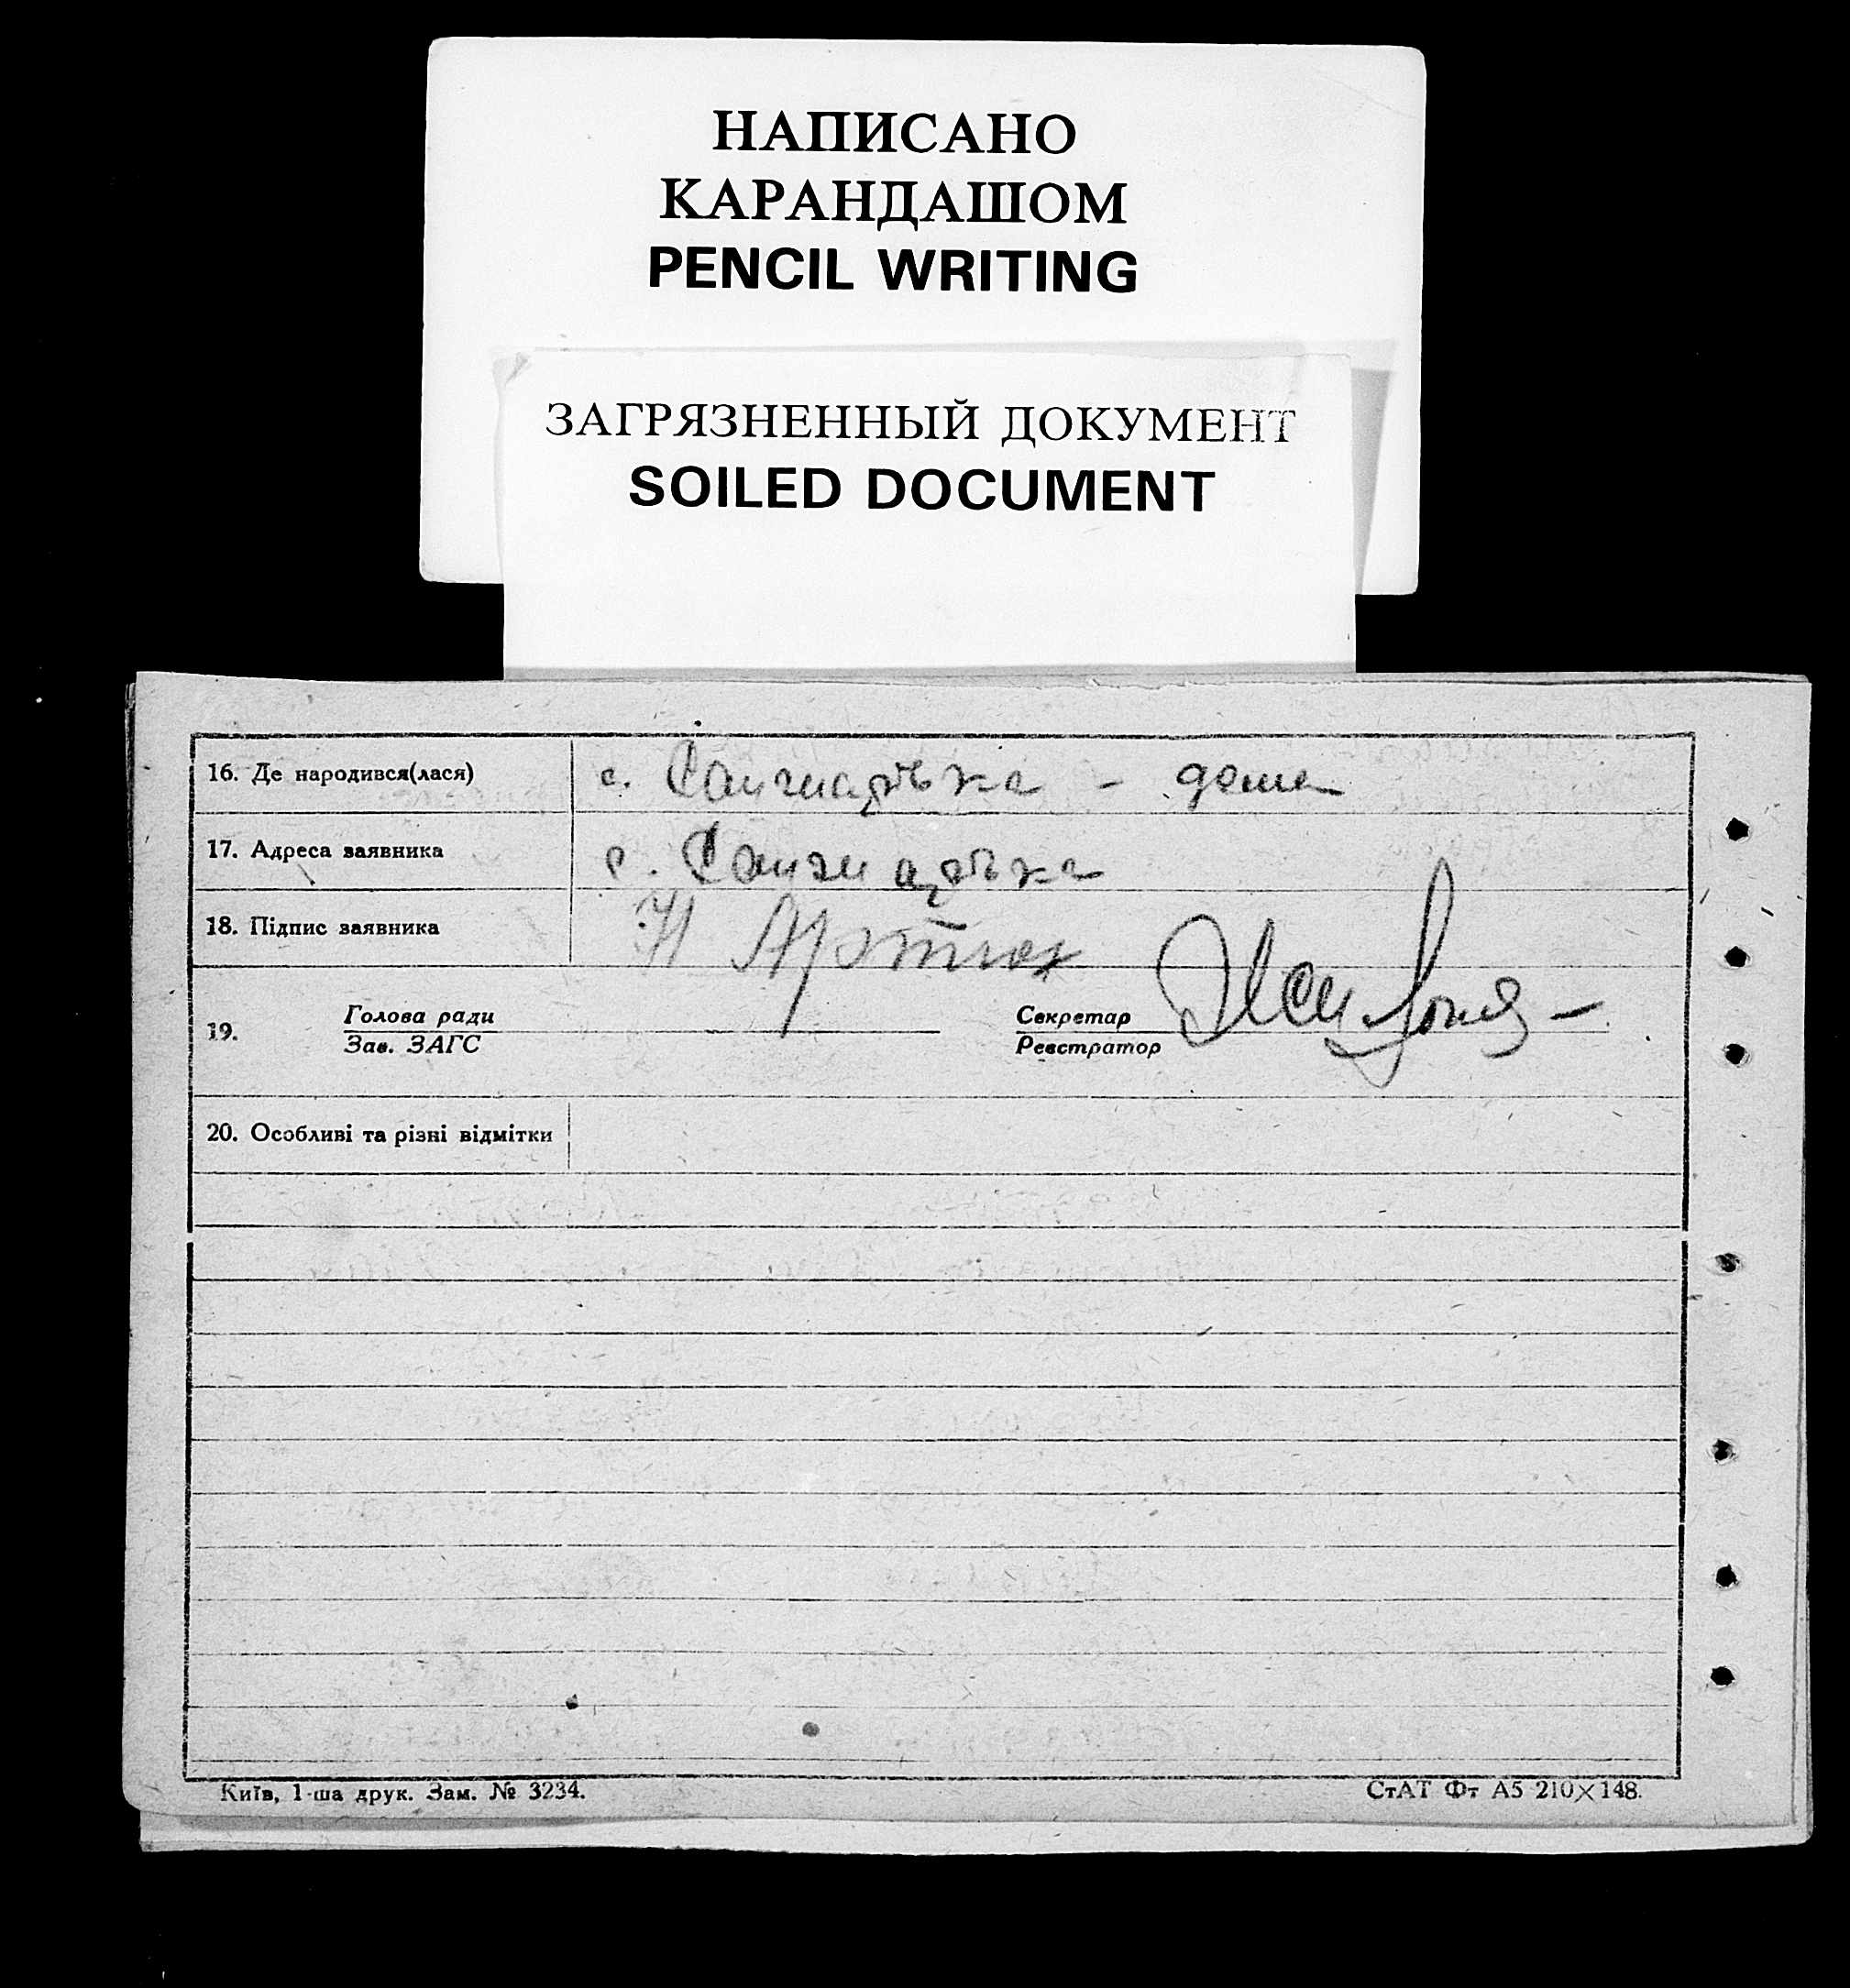 НАПИСАНО
КАРАНДАШОМ
PENCIL WRITING
ЗАГРЯЗНЕННЫЙ ДОКУМЕНТ
SOILED DOCUMENT
16. Де народився(лася) с. - дома
17. Адреса заявника с.
18. Підпис заявника Н Артюх
19. Голова ради Секретар
Зав. ЗАГС Реєстратор
20. Особливі та різні відмітки
Київ, 1-ша друк. Зам. № 3234. СтАТ Фт А5 210×148.